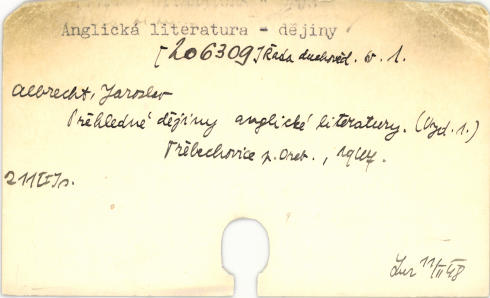 Anglická literatura - dějiny
[206309] Řada duchověd. sv. 1.
Albrecht, Jaroslav
Přehledné dějiny anglické literatury. (Vyd. 1.)
Třebechovice p. Oreb., 1947.
211 s.
11/II 48